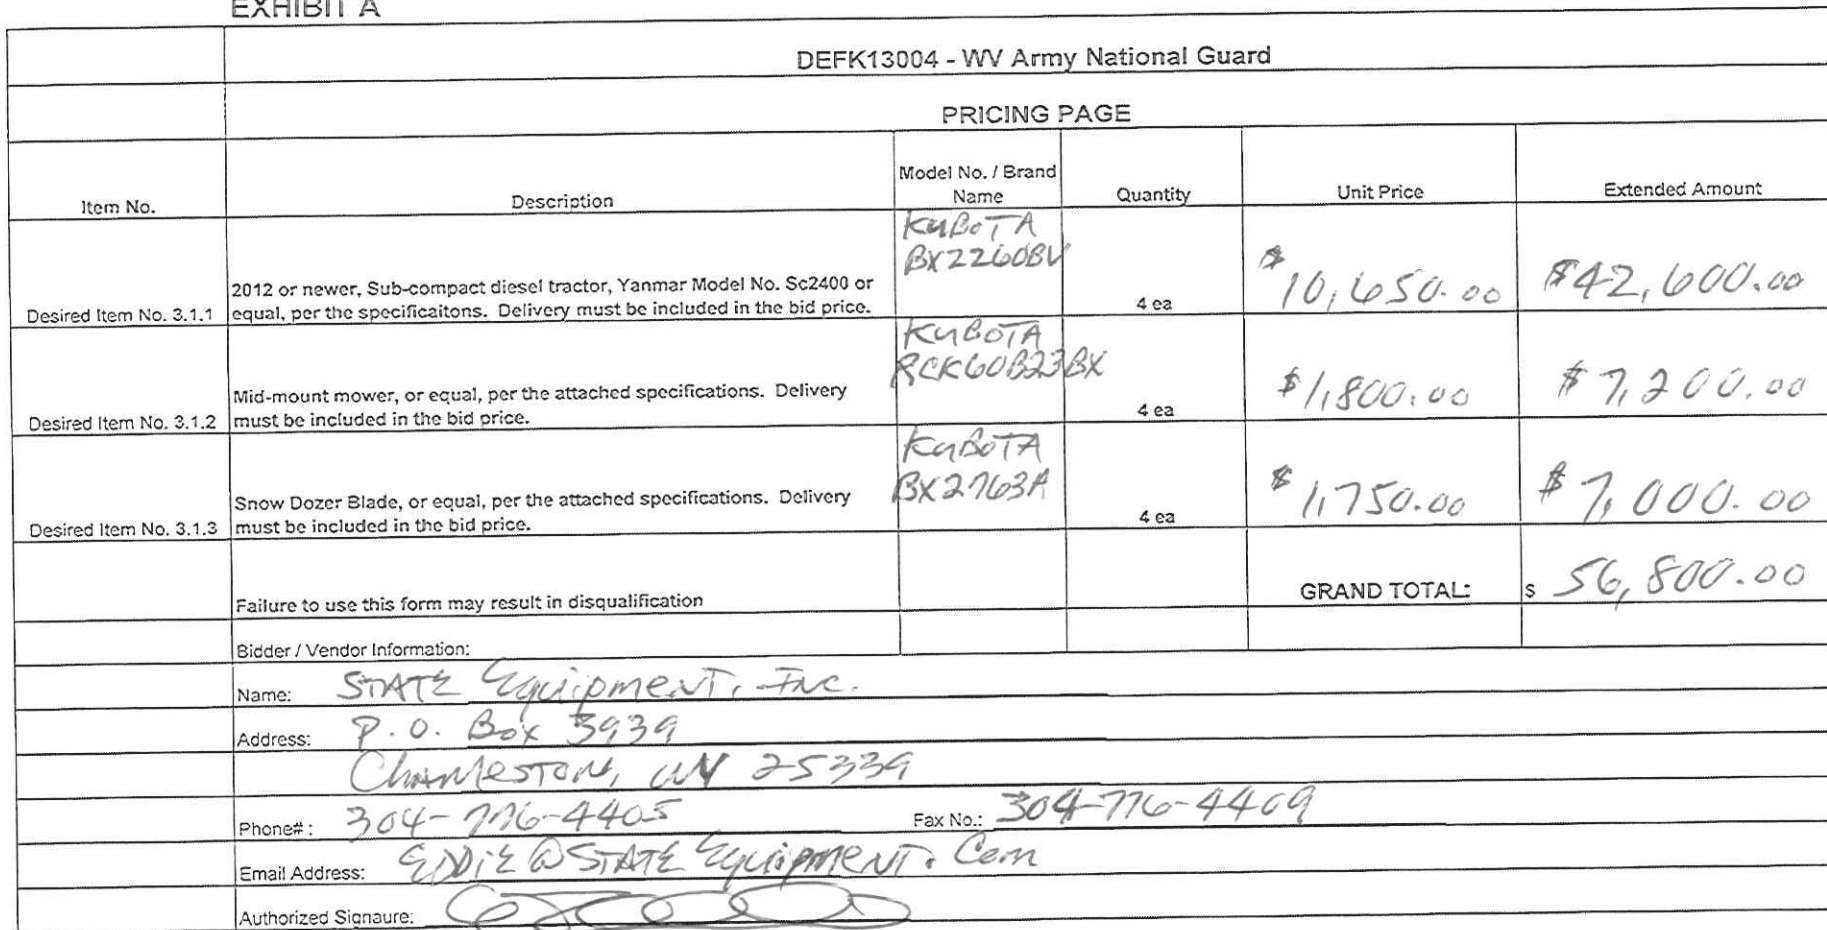 EXHIBIT A
DEFK13004 - WV Army National Guard
PRICING PAGE
Item No. Description Model No. / Brand Name Quantity Unit Price Extended Amount
KUBOTA
BX2260BV
2012 or newer, Sub-compact diesel tractor, Yanmar Model No. Sc2400 or
Desired Item No. 3.1.1 equal, per the specificaitons. Delivery must be included in the bid price. 4 ea $10,650.00 $42,600.00
KUBOTA
RCK60B23BX
Mid-mount mower, or equal, per the attached specifications. Delivery
Desired Item No. 3.1.2 must be included in the bid price. 4 ea $1,800.00 $7,200.00
KUBOTA
BX2763A
Snow Dozer Blade, or equal, per the attached specifications. Delivery
Desired Item No. 3.1.3 must be included in the bid price. 4 ea $1,750.00 $7,000.00
Failure to use this form may result in disqualification GRAND TOTAL: $ 56,800.00
Bidder / Vendor Information:
Name: STATE Equipment, Inc.
Address: P.O. Box 3939
Charleston, WV 25339
Phone# : 304-776-4405 Fax No.: 304-776-4409
Email Address: EDDIE@STATE Equipment.Com
Authorized Signaure: